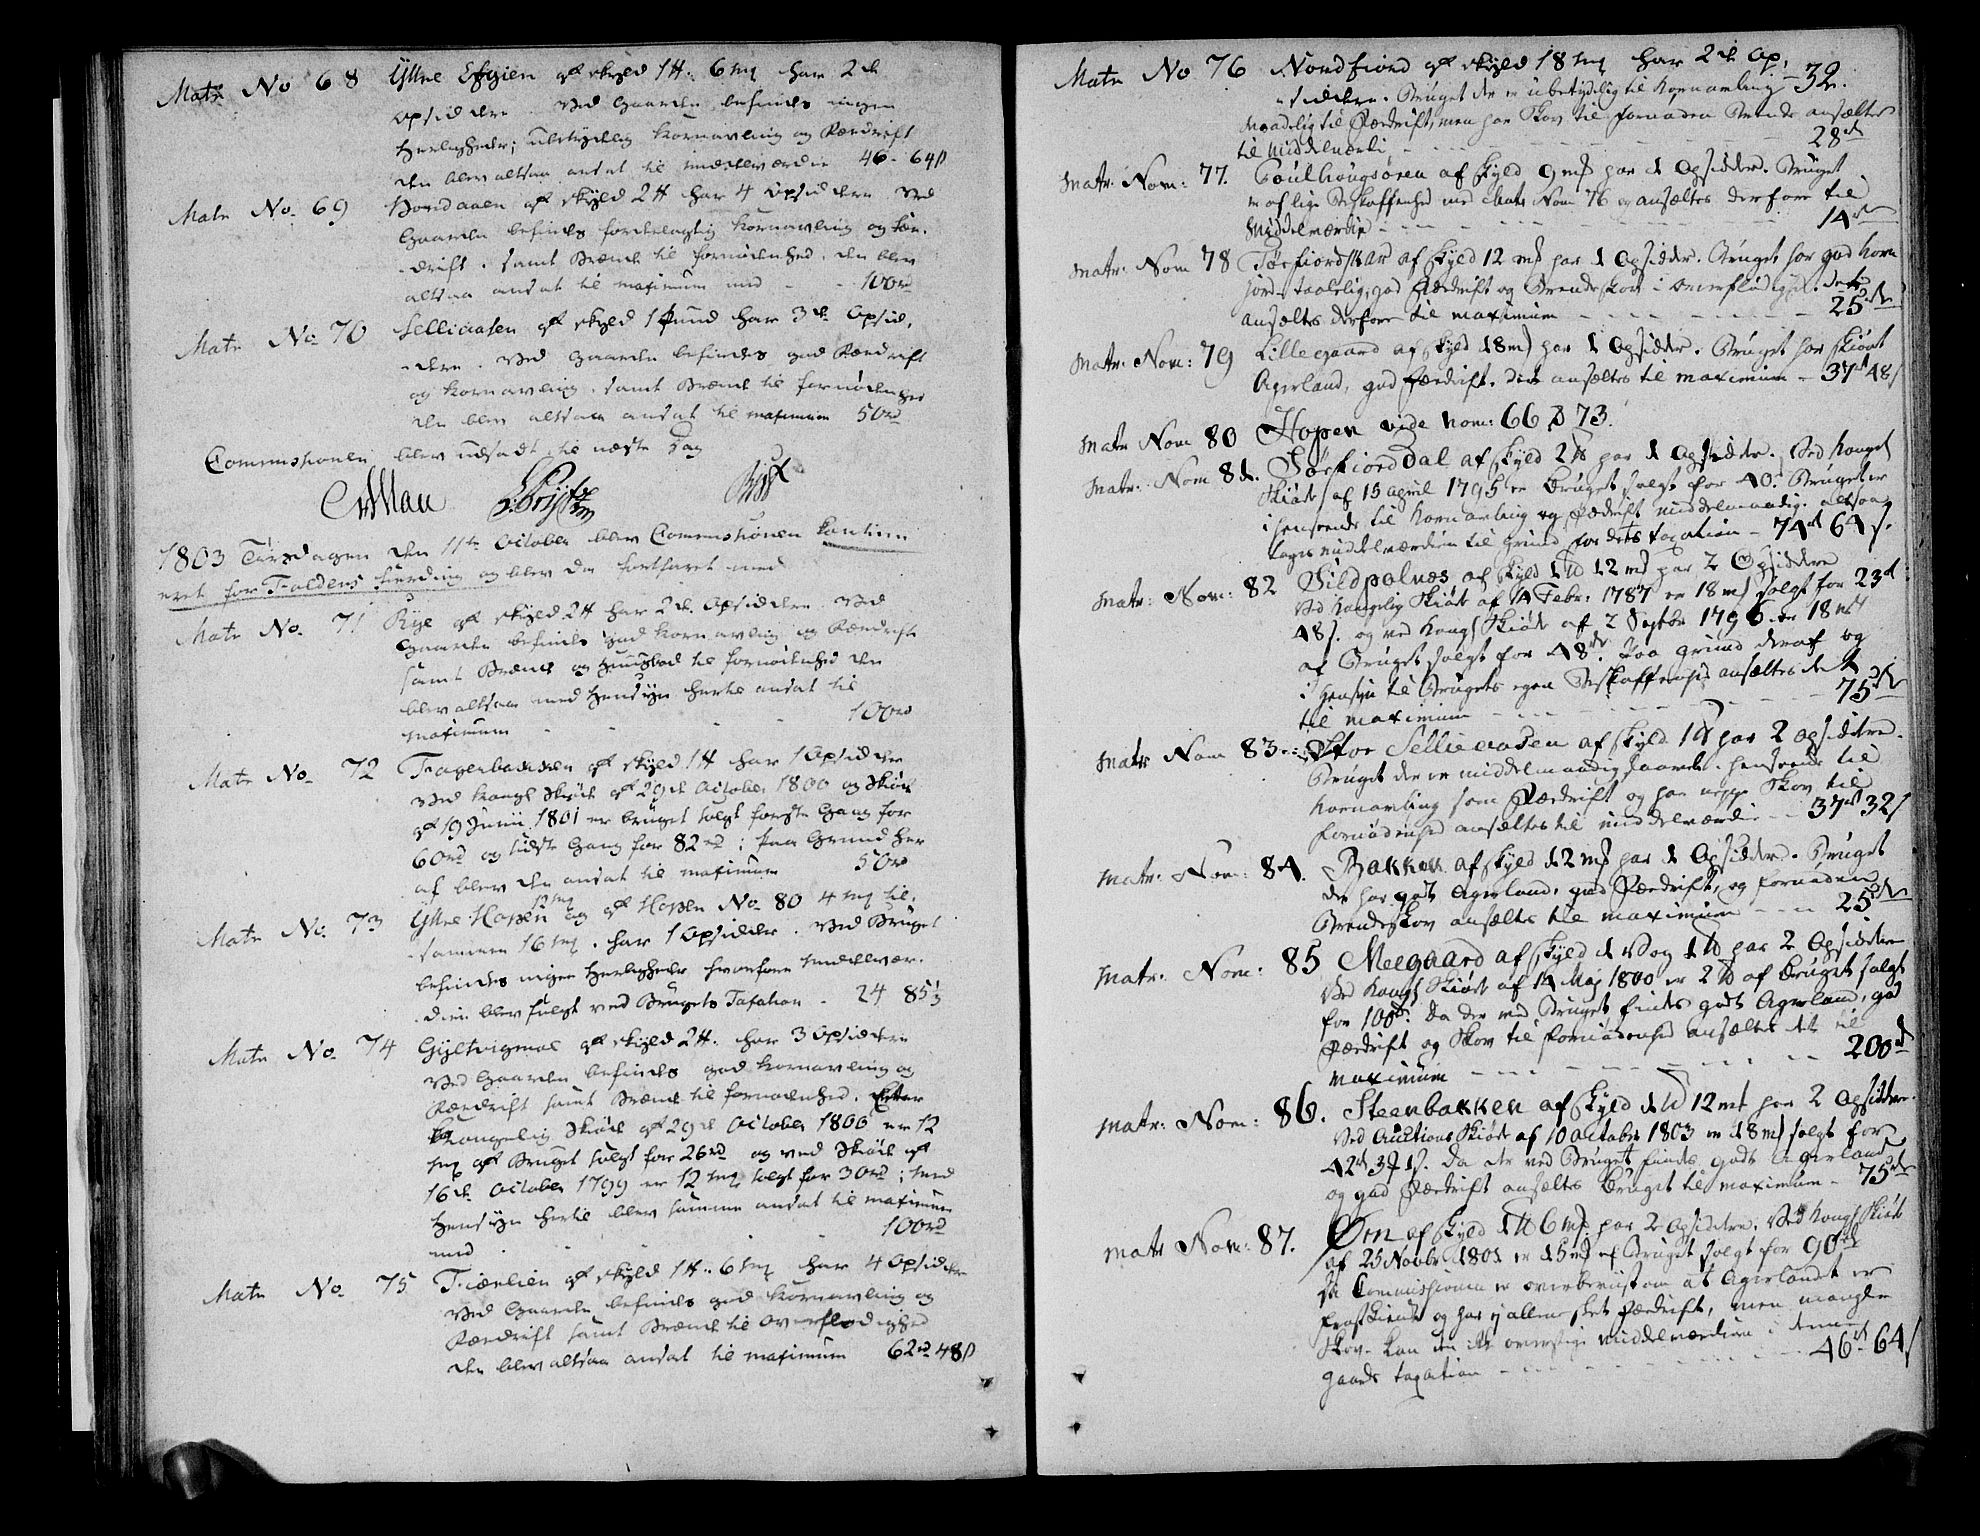 Matr No 68 Yttre Efgien af skyld 1 ℔: 6 mk har 2de
Opsiddere. Ved Gaarden befindes ingen
Herligheder; ubetydelig Kornavling og Fædrift
den blev altsaa ansat til middelværdie 46 - 64 ß
Matr No. 69 af skyld 2 ℔ har 4 Opsiddere. Ved
Gaarden befindes fordelagtig Kornavling og Fæe-
drift. samt Brænde til fornødenhed. den blev
altsaa ansat til maximum med - - 100 rd
Matr No. 70 Selliaasen af skyld 1 pund har 3de Opsid,
dere. Ved Gaarden befindes god Fædrift
og Kornavling. samt Brænde til fornødenhed
den blev altsaa ansat til maximum 50 rd
Commissionen blev udsadt til næste Dag
1803 Tirsdagen den 11te October blev Commissionen Continu
eret for Foldens fierding og blev da fortfaret med
Matr No. 71 Rye af skyld 2 ℔ har 2de Opsiddere. Ved
Gaarden befindes god Kornavling og Fædrift
samt Brænde og til fornødenhed den
blev altsaa med Hensyn hertil ansat til
maximum - - - 100 rd
Matr No. 72 Fagerbakken af skyld 1 ℔ har 1 Opsidder
Ved Kongl Skiøde af 29de October 1800 og Skiøde
af 19 Junii 1801 er bruget solgt første Gang for
60 rd og sidste Gang for 82 rd; paa Grund her
af blev den ansat til maximum 50 rd
Matr No. 73 Yttre Hopen 12 mk og af Hopen No. 80 4 mk til,
sammen 16 mk. har 1 Opsidder. Ved Bruget
befindes ingen Herligheder hvorfore middelvær-
dien blev fulgt ved Brugets Taxation. 24 85⅓
Matr No. 74 Gyltvigmoe af skyld 2 ℔. har 3 Opsiddere
Ved Gaarden befindes god Kornavling og
Fædrift samt Brænde til fornødenhed. Efter
Kongelig Skiøde af 29de October 1800 er 12
mk af Bruget solgt for 26 rd og ved Skiøde af
16de October 1799 er 12 mk solgt for 30 rd; med
Hensyn hertil blev samme ansat til maximum
med - - - 100 rd
Matr No. 75 Fiærlien af skyld 1 ℔.. 6 mk har 4 Opsiddere
Ved Gaarden befindes god Kornavling og
Fædrift samt Brænde til overflødighed
den blev altsaa ansat til maximum 62 rd 48 ß
Matr No 76 Nordfiord af skyld 18 mk har 2de Op,
siddere. Bruget der er ubetydelig til Kornavling 32.
maadelig til Fædrift, men har Skov til fornøden Brænde ansættes
til middelværdi - - - 28 rd
Matr: Nom: 77. af skyld 9 mk har 1 Opsidder. Bruget
er af lige Beskaffenhed med Matr Nom 76 og ansættes derfore til
Middelværdie - - - 14 rd
Matr: Nom 78 Tørfiordskar af skyld 12 mk har 1 Opsidder. Bruget har god Korn
jord taalelig, god Fædrift og Brændeskov i overflødighed. dette
ansættes derfore til maximum - - - 25 rd
Matr: Nom: 79 Lillegaard af skyld 18 mk har 1 Opsidder. Bruget har skiønt
Agerland, god Fædrift. det ansættes til maximum - 37 rd 48 ß
Matr Nom 80 Hopen vide Nom: 66 & 73.
Matr: Nom 81. Tørfiorddal af skyld 2 ℔ har 1 Opsidder. Ved Kongel
Skiøde af 15 April 1795 er Bruget solgt for 40. Bruget er
i henseende til Kornavling og Fædrift middelmaadig. altsaa
tages middelværdien til Grund for dets taxation - 74 rd 64 ß.
Matr: Nom: 82 Sildpolnæs af skyld 1 ℔ 12 mk har 2 Opsiddere
Ved Kongelig Skiøde af 14 Febr: 1787 er 18 mk solgt for 23 rd
48 ß. og ved Kongl Skiøde af 2 Septbr 1796 er 18 mk
af Bruget solgt for 48 rd. Paa grund deraf og
i Hensyn til Brugets egen Beskaffenhed ansættes det
til maximum - - - 75 rd
Matr Nom 83. Stor Selliaasen af skyld 1 ℔ har 2 opsiddere.
Bruget der er middelmaadig saavel i henseende til
Kornavling som Fædrift og har neppe Skov til
fornødenhed ansættes til middelværdi - - 37 rd 32 ß
Matr: Nom: 84. Bakken af skyld 12 mk har 1 Opsidder. Bruget
der har godt Agerland, god Fædrift, og fornøden
Brændeskov ansættes til maximum - - - 25 rd
Matr: Nom: 85 Meegaard af skyld 1 Vog 1 ℔ har 2 Opsiddere
Ved Kongl Skiøde af 14 Maj 1800 er 2 ℔ af Bruget solgt
for 100 rd. Da der ved Bruget findes godt Agerland, god
Fædrift og Skov til fornødenhed ansættes det til
maximum - - - 200 rd
Matr: Nom: 86. Steenbakken af skyld 1 ℔ 12 mk har 2 Opsiddere.
Ved Auctions Skiøde af 10 October 1803 er 18 mk solgt for
42 rd 3 ℥ 1 ß. Da der ved Bruget findes godt Agerland
og god Fædrift ansættes Bruget til maximum - 75 rd
Matr Nom: 87. Øen af skyld 1 ℔ 6 mk har 2 Opsiddere. Ved Kongl Skiøde
af 25 Novbr 1801 er 15 mk af Bruget solgt for 90 rd
Da Commissionen er overbeviist om at Agerlandet er
frostlændt og har ej allene slet Fædrift, men mangler
Skov - kan den ikke overstige Middelværdien i denne
Gaards taxation - - - 46 rd 64 ß